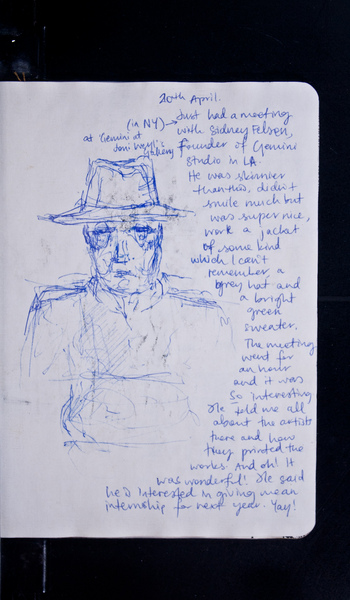 20th April.
(in NY) → Just had a meeting
with Sidney Felsen,
at Gemini at
Joni Weyl
Gallery
founder of Gemini
Studio in LA.
He was skinnier
than this, didn't
smile much but
was super nice,
wore a jacket
of some kind
which I can't
remember, a
grey hat and
a bright
green
sweater.
The meeting
went for
an hour
and it was
So interesting
He told me all
about the artists
there and how
they printed the
works. And oh! It
was wonderful! He said
he's interested in giving me an
internship for next year. Yay!